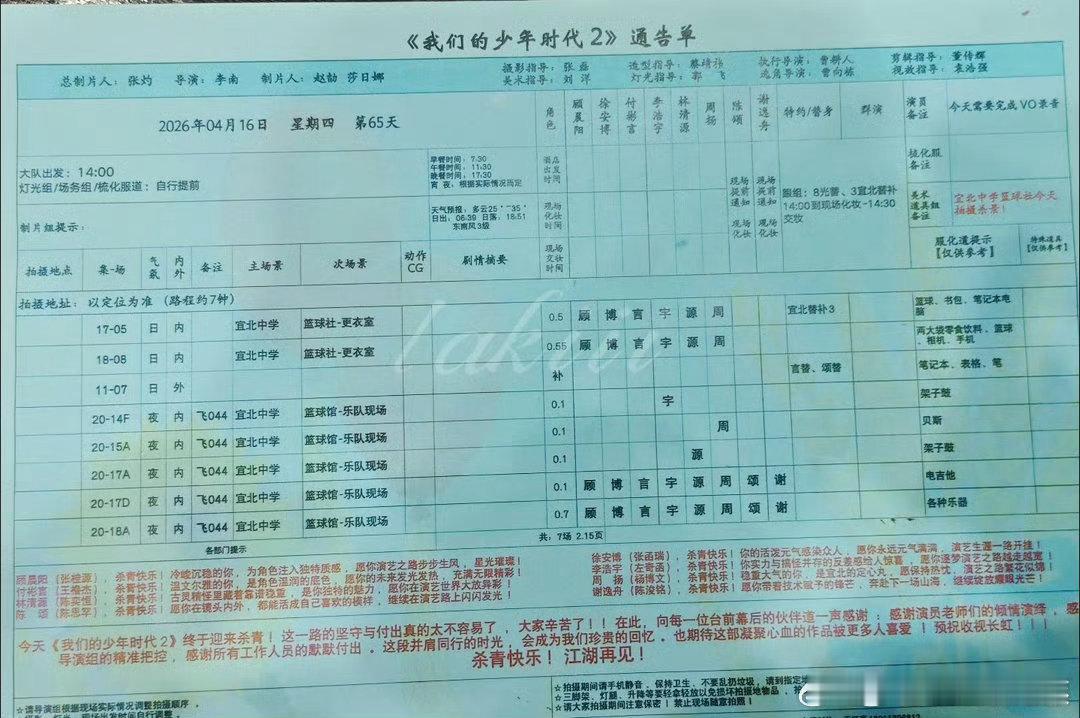 《我们的少年时代2》通告单
总制片人：张灼 导演：李南 制片人：赵韵 莎日娜
摄影指导：张磊 造型指导：蔡靖祎 执行导演：曹耕人 剪辑指导：董传辉
美术指导：刘洋 灯光指导：郭飞 选角导演：曹向栋 视效指导：袁浩强
2026年04月16日 星期四 第65天
角色 顾晨阳 徐安博 付彬言 李浩宇 林清源 周扬 陈颂 谢逸舟 特约/替身 群演 演员备注 今天需要完成VO录音
大队出发：14:00
灯光组/场务组/梳化服道：自行提前
早餐时间：7:30
午餐时间：11:30
晚餐时间：17:30
宵夜：根据实际情况而定
酒店出发时间
梳化服备注
天气预报：多云25°~35°
日出：06:39 日落：18:51
东南风3级
现场化妆时间
现场提前通知 现场化妆
现场提前通知 现场化妆
跟组：8光替、3宜北替补
14:00到现场化妆-14:30
交妆
美术道具组备注
宜北中学篮球社今天拍摄杀景！
制片组提示：
现场交妆时间
服化道提示
【仅供参考】
特殊道具
【仅供参考】
拍摄地点 集-场 气氛 内外 备注 主场景 次场景 动作CG 剧情摘要
拍摄地址：以定位为准（路程约7钟）
17-05 日 内 宜北中学 篮球社-更衣室 0.5 顾 博 言 宇 源 周 宜北替补3 篮球、书包、笔记本电脑
18-08 日 内 宜北中学 篮球社-更衣室 0.55 顾 博 言 宇 源 周 两大袋零食饮料、篮球、相机、手机
11-07 日 外 补 言替、颂替 笔记本、表格、笔
20-14F 夜 内 飞044 宜北中学 篮球馆-乐队现场 0.1 宇 架子鼓
20-15A 夜 内 飞044 宜北中学 篮球馆-乐队现场 0.1 周 贝斯
20-17A 夜 内 飞044 宜北中学 篮球馆-乐队现场 0.1 源 架子鼓
20-17D 夜 内 飞044 宜北中学 篮球馆-乐队现场 0.1 顾 博 言 宇 源 周 颂 谢 电吉他
20-18A 夜 内 飞044 宜北中学 篮球馆-乐队现场 0.7 顾 博 言 宇 源 周 颂 谢 各种乐器
共：7场 2.15页
各部门提示
顾晨阳（张桂源），杀青快乐！冷峻沉稳的你，为角色注入独特质感，愿你演艺之路步步生风，星光璀璨！
徐安博（张函瑞），杀青快乐！你的活泼元气感染众人，愿你永远元气满满，演艺生涯一路开挂！
付彬言（王橹杰），杀青快乐！温文尔雅的你，是角色温润的底色，愿你的未来发光发热，充满无限精彩！
李浩宇（左奇函），杀青快乐！你实力与搞怪并存的反差感给人惊喜，愿你逐梦演艺之路越走越宽！
林清源（陈奕恒），杀青快乐！古灵精怪里藏着靠谱稳重，是你独特的魅力，愿你在演艺世界大放异彩！
周 扬（杨博文），杀青快乐！稳重大气的你，是宜北的定心丸，愿你保持热忱，演艺之路繁花似锦！
陈 颂（陈思罕），杀青快乐！愿你在镜头内外，都能活成自己喜欢的模样，继续在演艺路上闪闪发光！
谢逸舟（陈浚铭），杀青快乐！愿你带着技术赋予的锋芒，奔赴下一场山海，继续绽放耀眼光芒！
今天《我们的少年时代2》终于迎来杀青！这一路的坚守与付出真的太不容易了，大家辛苦了！！在此，向每一位台前幕后的伙伴道一声感谢：感谢演员老师们的倾情演绎，感
导演组的精准把控，感谢所有工作人员的默默付出。这段并肩同行的时光，会成为我们珍贵的回忆。也期待这部凝聚心血的作品被更多人喜爱！预祝收视长虹！！！
杀青快乐！江湖再见！
☆请导演组根据现场情况调整拍摄顺序，
☆拍摄期间请手机静音、保持卫生、不要乱扔垃圾，请到指定
☆三脚架、灯腿、升降等要轻拿轻放以免损坏拍摄地物品，
☆请大家拍摄期间注意保密！禁止现场随意拍照！